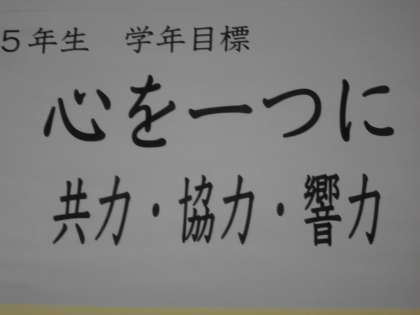 5年生　学年目標
心を一つに
共力・協力・響力